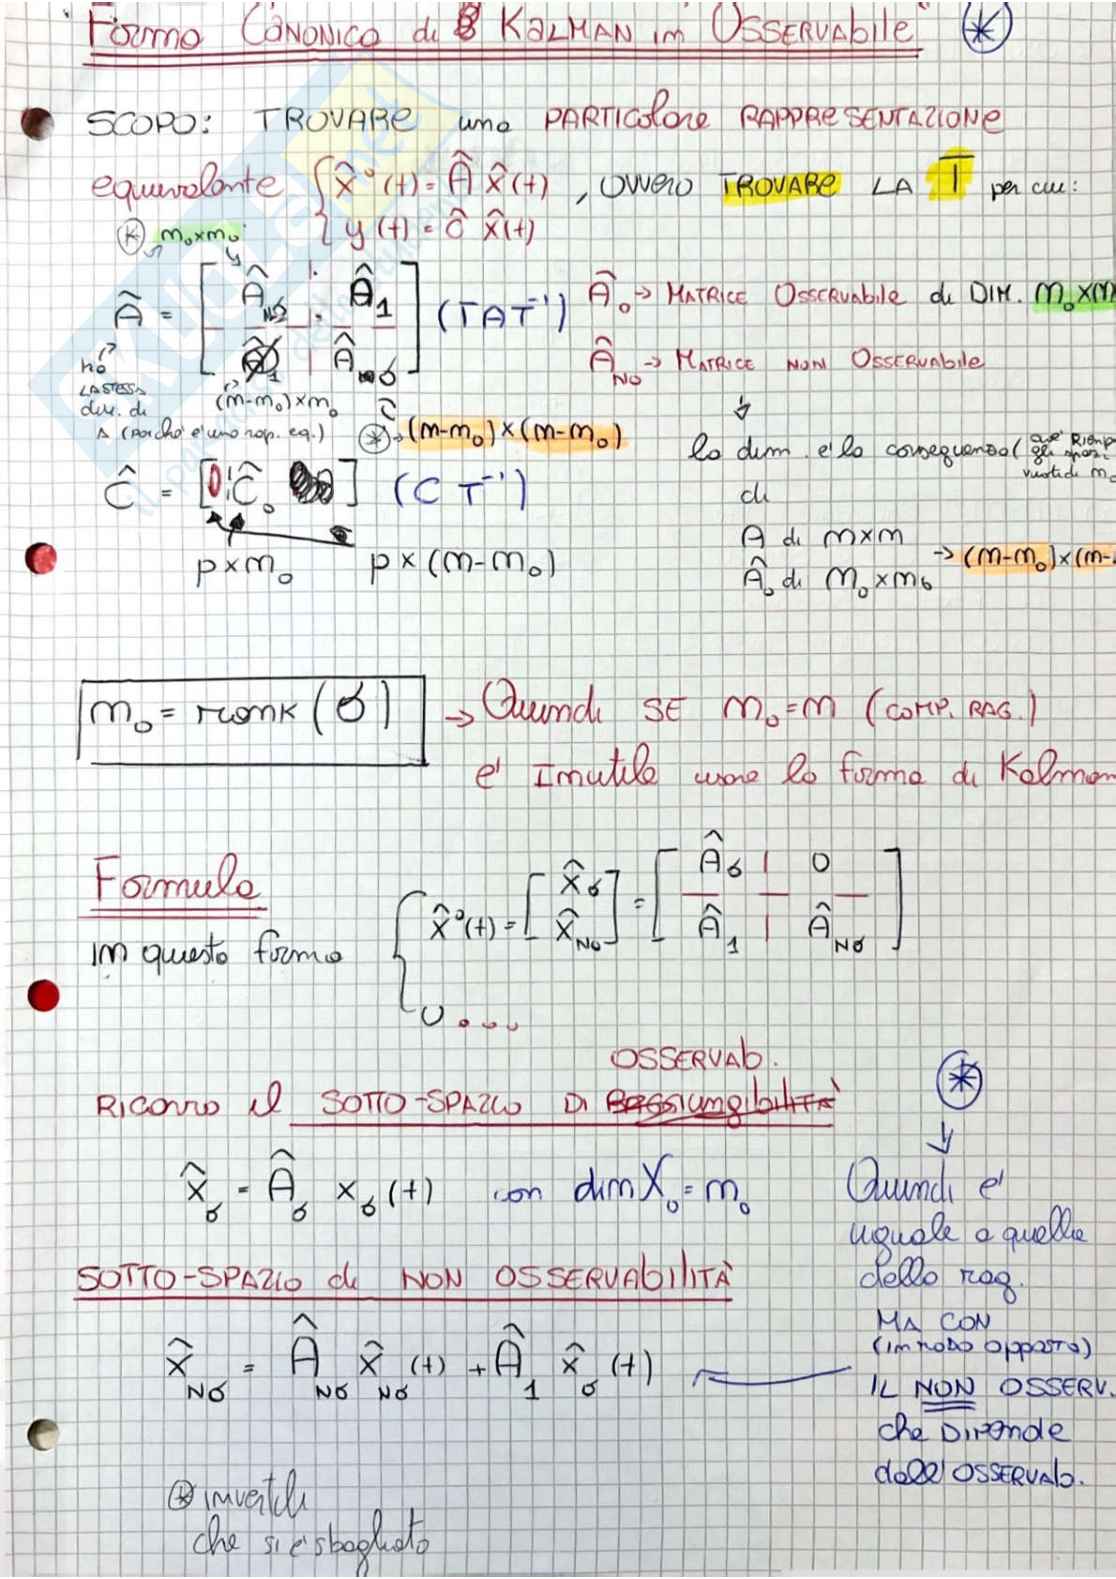 Forma Canonica di Kalman in "Osservabile" *
SCOPO: TROVARE una PARTIColare RAPPRESENTAZIONE
equivalente { x̂°(t) = Â x̂(t) , ovvero TROVARE LA T per cui:
y(t) = ĉ x̂(t)
(K) m₀xm₀
 = [ Â_NO Â_1 (TAT⁻¹) Â_o → MATRICE Osservabile di DIM. m₀xm
Â_1 Â_no ] Â_NO → MATRICE NON Osservabile
ha
LA STESSA
dim. di
A (poiché è una rap. eq.)
(m-m₀)xm₀
* → (m-m₀)x(m-m₀)
la dim. è la conseguenza (
di
Ĉ = [0 Ĉ_o ] (C T⁻¹)
A di mxm
p x m₀ p x (m-m₀)
Â_o di m₀xm₀ → (m-m₀)x(m-
m₀ = rank (O) → Quindi SE m₀=m (COMP. RAG.)
è Inutile usare la forma di Kalman
Formula
in questa forma { x̂°(t) = [ x̂_o = [ Â_o 0
x̂_NO ] Â_1 Â_NO ]
U....
OSSERVAb.
RICAVO il SOTTO-SPAZIO DI Raggiungibilità
x̂_o = Â_o x_o(t) con dim X_o = m₀
SOTTO-SPAZIO di NON OSSERVAbilITÀ
x̂_NO = Â_NO x̂_NO(t) + Â_1 x̂_o(t)
*
Quindi è
uguale a quella
della rag.
MA CON
(in modo opposto)
IL NON OSSERV.
che DIPende
dall'OSSERVAb.
* invertili
che si è sbagliato